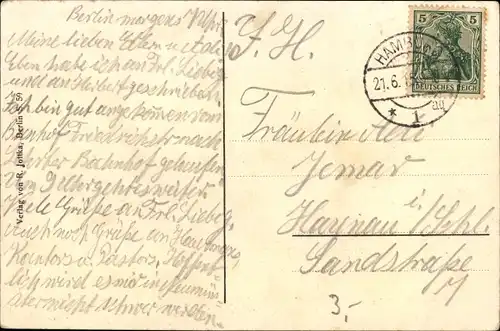 Berlin morgens 7 Uhr
Meine lieben Eltern u.
Eben habe ich an Frl. Liebig
und an Herbert geschrieben.
Ich bin gut angekommen vom
Bahnhof Friedrichstr nach
Bahnhof gelaufen
Um 9 Uhr geht es weiter
Viele Grüße an Frl. Liebig,
auch noch Grüße an
Kantors u. Pastors,
lich wird es mir in
ster nicht schwer werden.
Verlag von R. Jottka, Berlin S. 59
F. H.
HAMBURG
21.6.
* 1
5 5
DEUTSCHES REICH
Fräulein
Haynau i/Schl.
Sandstraße
3,-